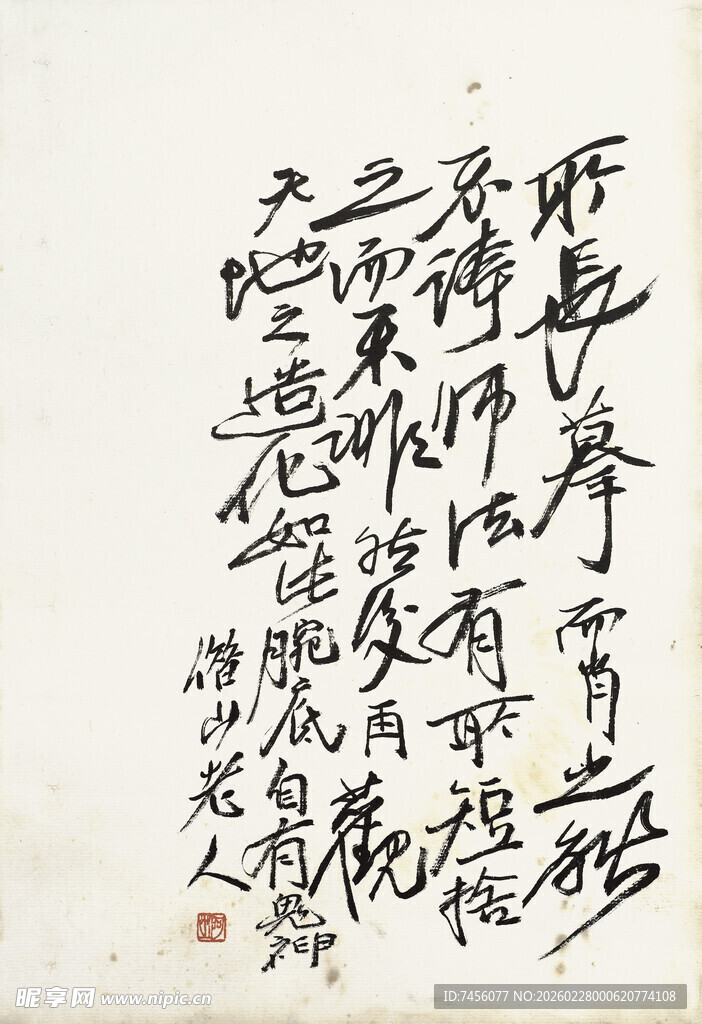 所長摹而肖之能
不誇師法有所短捨
之而不誹然後再觀
天地之造化如此腕底自有鬼神
借山老人
昵享网 www.nipic.cn
ID:7456077 NO:20260228000620774108